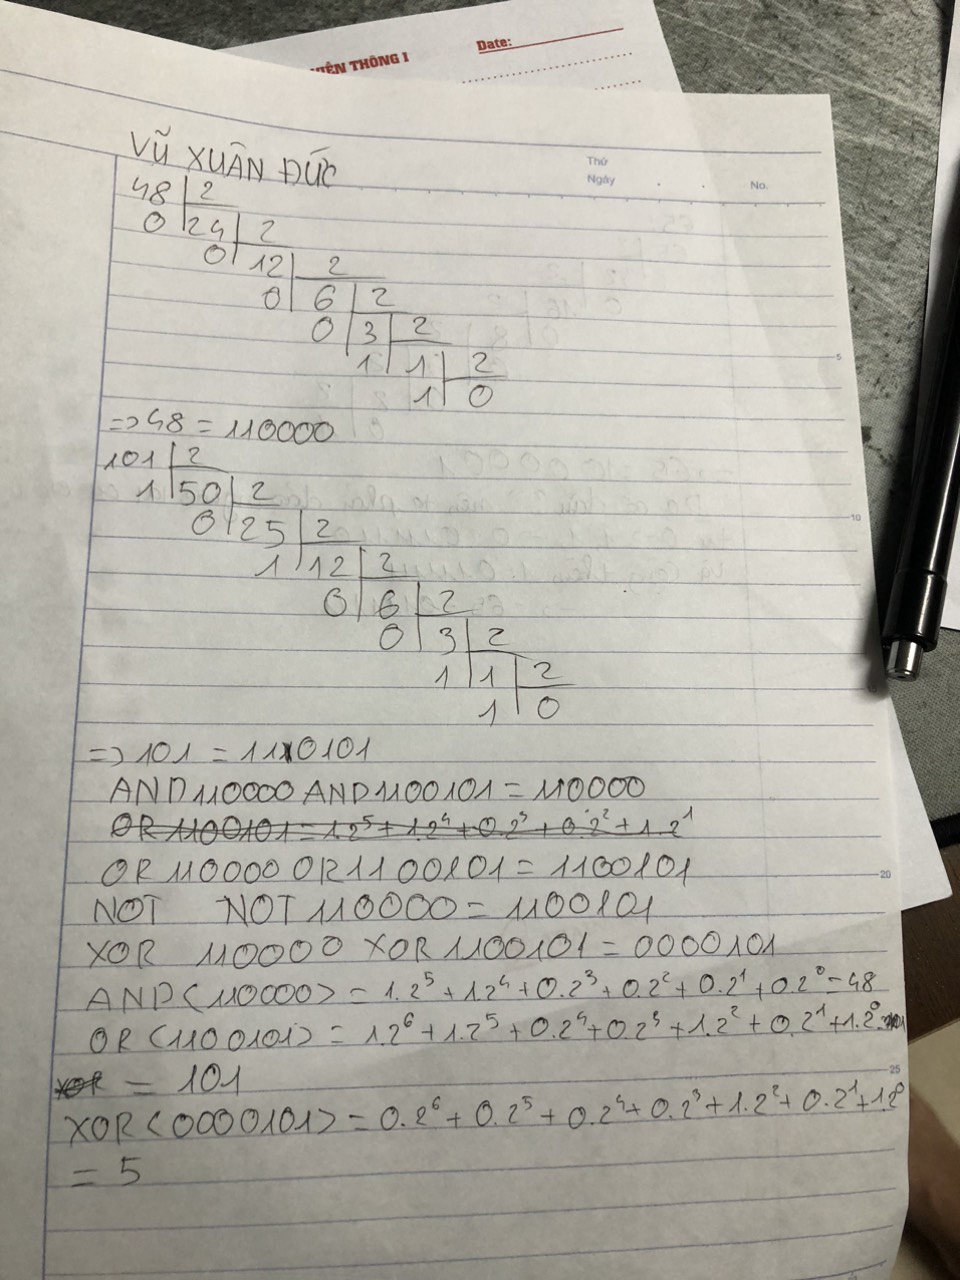 VIỄN THÔNG 1
Date:
VŨ XUÂN ĐỨC
Thứ
Ngày
No.
48 2
0 24 2
0 12 2
0 6 2
0 3 2
1 1 2
1 0
5
=> 48 = 110000
101 2
1 50 2
0 25 2
10
1 12 2
0 6 2
0 3 2
1 1 2
1 0
=> 101 = 1110101
AND 110000 AND 1100101 = 110000
OR 1100101 = 1.2^5 + 1.2^4 + 0.2^3 + 0.2^2 + 1.2^1
OR 110000 OR 1100101 = 1100101
20
NOT NOT 110000 = 1100101
XOR 110000 XOR 1100101 = 0000101
AND (110000) = 1.2^5 + 1.2^4 + 0.2^3 + 0.2^2 + 0.2^1 + 0.2^0 = 48
OR (1100101) = 1.2^6 + 1.2^5 + 0.2^4 + 0.2^3 + 1.2^2 + 0.2^1 + 1.2^0
XOR = 101
25
XOR (0000101) = 0.2^6 + 0.2^5 + 0.2^4 + 0.2^3 + 1.2^2 + 0.2^1 + 1.2^0
= 5